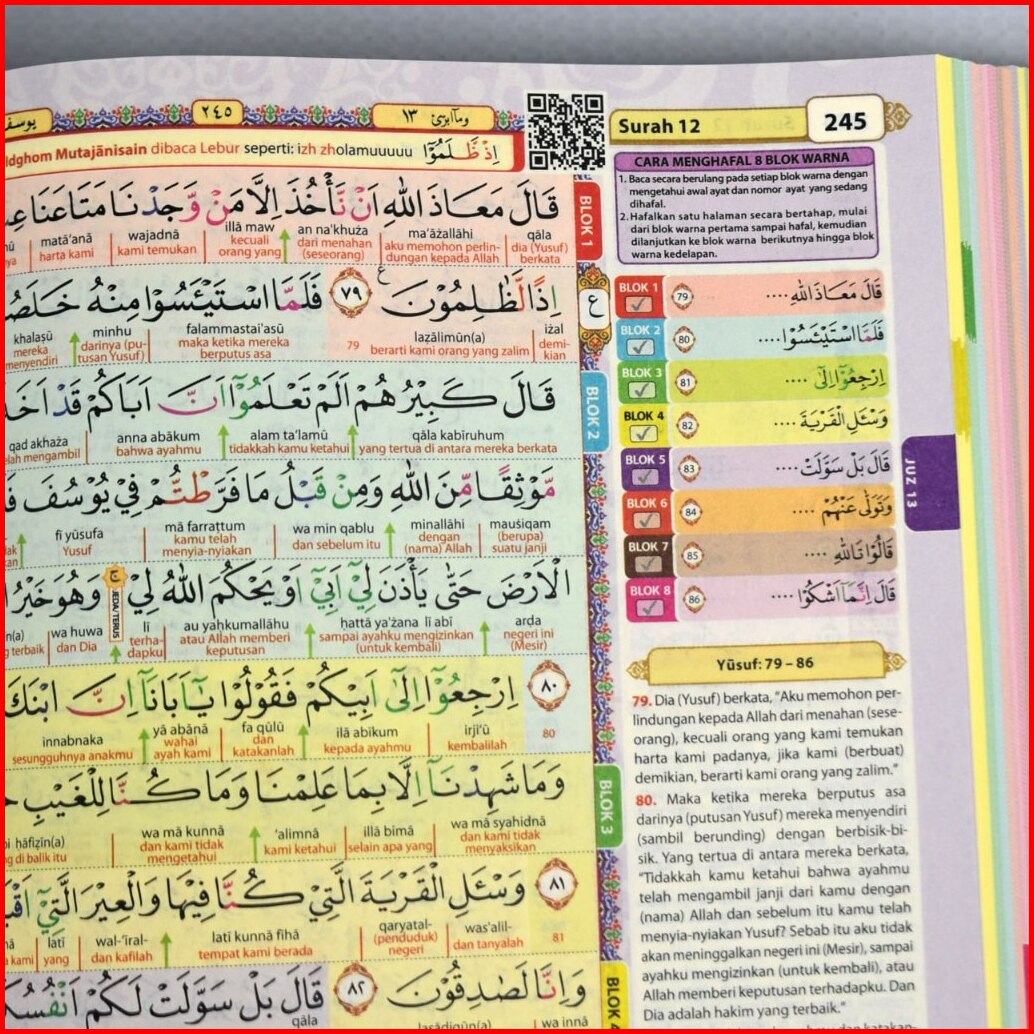 يوسف
٢٤٥
وماۤابرئ ١٣
Idghom Mutajānisain dibaca Lebur seperti: izh zholamuuuuu اِذْ ظَّلَمُوْٓا
قَالَ مَعَاذَ اللّٰهِ اَنْ نَّأْخُذَ اِلَّا مَنْ وَّجَدْنَا مَتَاعَنَا
qāla ma‘āżallāhi an na'khuża illā maw wajadnā matā‘anā
dia (Yusuf) berkata aku memohon perlin-dungan kepada Allah dari menahan (seseorang) kecuali orang yang kami temukan harta kami
اِذًا لَّظٰلِمُوْنَ ࣖ ٧٩ فَلَمَّا اسْتَيْـَٔسُوْا مِنْهُ خَلَصُ
iżal laẓālimūn(a) falammastai'asū minhu khalaṣū
demi-kian berarti kami orang yang zalim 79 maka ketika mereka berputus asa darinya (pu-tusan Yusuf) mereka menyendiri
قَالَ كَبِيْرُهُمْ اَلَمْ تَعْلَمُوْٓا اَنَّ اَبَاكُمْ قَدْ اَخَذَ
qāla kabīruhum alam ta‘lamū anna abākum qad akhaża
yang tertua di antara mereka berkata tidakkah kamu ketahui bahwa ayahmu telah mengambil
مَّوْثِقًا مِّنَ اللّٰهِ وَمِنْ قَبْلُ مَا فَرَّطْتُّمْ فِيْ يُوْسُفَ
mauṡiqam minallāhi wa min qablu mā farrattum fī yūsufa
(berupa) suatu janji dengan (nama) Allah dan sebelum itu kamu telah menyia-nyiakan Yusuf
الْاَرْضَ حَتّٰى يَأْذَنَ لِيْٓ اَبِيْٓ اَوْ يَحْكُمَ اللّٰهُ لِيْۚ وَهُوَ خَيْرُ
JEDA/TERUS
arḍa ḥattā ya'żana lī abī au yaḥkumallāhu lī wa huwa
negeri ini (Mesir) sampai ayahku mengizinkan (untuk kembali) atau Allah memberi keputusan terha-dapku dan Dia terbaik
٨٠ اِرْجِعُوْٓا اِلٰٓى اَبِيْكُمْ فَقُوْلُوْا يٰٓاَبَانَآ اِنَّ ابْنَكَ
80 irji‘ū ilā abīkum fa qūlū yā abānā innabnaka
kembalilah kepada ayahmu dan katakanlah wahai ayah kami sesungguhnya anakmu
وَمَا شَهِدْنَآ اِلَّا بِمَا عَلِمْنَا وَمَا كُنَّا لِلْغَيْبِ
wa mā syahidnā illā bimā ‘alimnā wa mā kunnā ḥāfiẓīn(a)
dan kami tidak menyaksikan selain apa yang kami ketahui dan kami tidak mengetahui di balik itu
٨١ وَسْـَٔلِ الْقَرْيَةَ الَّتِيْ كُنَّا فِيْهَا وَالْعِيْرَ الَّتِيْٓ
81 was'alil- qaryatal- latī kunnā fīhā wal-‘īral- latī
dan tanyalah (penduduk) negeri tempat kami berada dan kafilah yang
وَاِنَّا لَصٰدِقُوْنَ ٨٢ قَالَ بَلْ سَوَّلَتْ لَكُمْ اَنْفُسُكُ
wa innā laṣādiqūn(a) qāla
BLOK 1
ع
BLOK 2
BLOK 3
BLOK 4
Surah 12
245
CARA MENGHAFAL 8 BLOK WARNA
1. Baca secara berulang pada setiap blok warna dengan
mengetahui awal ayat dan nomor ayat yang sedang
dihafal.
2. Hafalkan satu halaman secara bertahap, mulai
dari blok warna pertama sampai hafal, kemudian
dilanjutkan ke blok warna berikutnya hingga blok
warna kedelapan.
BLOK 1 79 قَالَ مَعَاذَ اللّٰهِ ....
BLOK 2 80 فَلَمَّا اسْتَيْـَٔسُوْا ....
BLOK 3 81 اِرْجِعُوْٓا اِلٰٓى ....
BLOK 4 82 وَسْـَٔلِ الْقَرْيَةَ ....
BLOK 5 83 قَالَ بَلْ سَوَّلَتْ ....
BLOK 6 84 وَتَوَلّٰى عَنْهُمْ ....
BLOK 7 85 قَالُوْا تَاللّٰهِ ....
BLOK 8 86 قَالَ اِنَّمَآ اَشْكُوْا ....
JUZ 13
Yūsuf: 79 – 86
79. Dia (Yusuf) berkata, “Aku memohon per-
lindungan kepada Allah dari menahan (sese-
orang), kecuali orang yang kami temukan
harta kami padanya, jika kami (berbuat)
demikian, berarti kami orang yang zalim.”
80. Maka ketika mereka berputus asa
darinya (putusan Yusuf) mereka menyendiri
(sambil berunding) dengan berbisik-bi-
sik. Yang tertua di antara mereka berkata,
“Tidakkah kamu ketahui bahwa ayahmu
telah mengambil janji dari kamu dengan
(nama) Allah dan sebelum itu kamu telah
menyia-nyiakan Yusuf? Sebab itu aku tidak
akan meninggalkan negeri ini (Mesir), sampai
ayahku mengizinkan (untuk kembali), atau
Allah memberi keputusan terhadapku. Dan
Dia adalah hakim yang terbaik.”